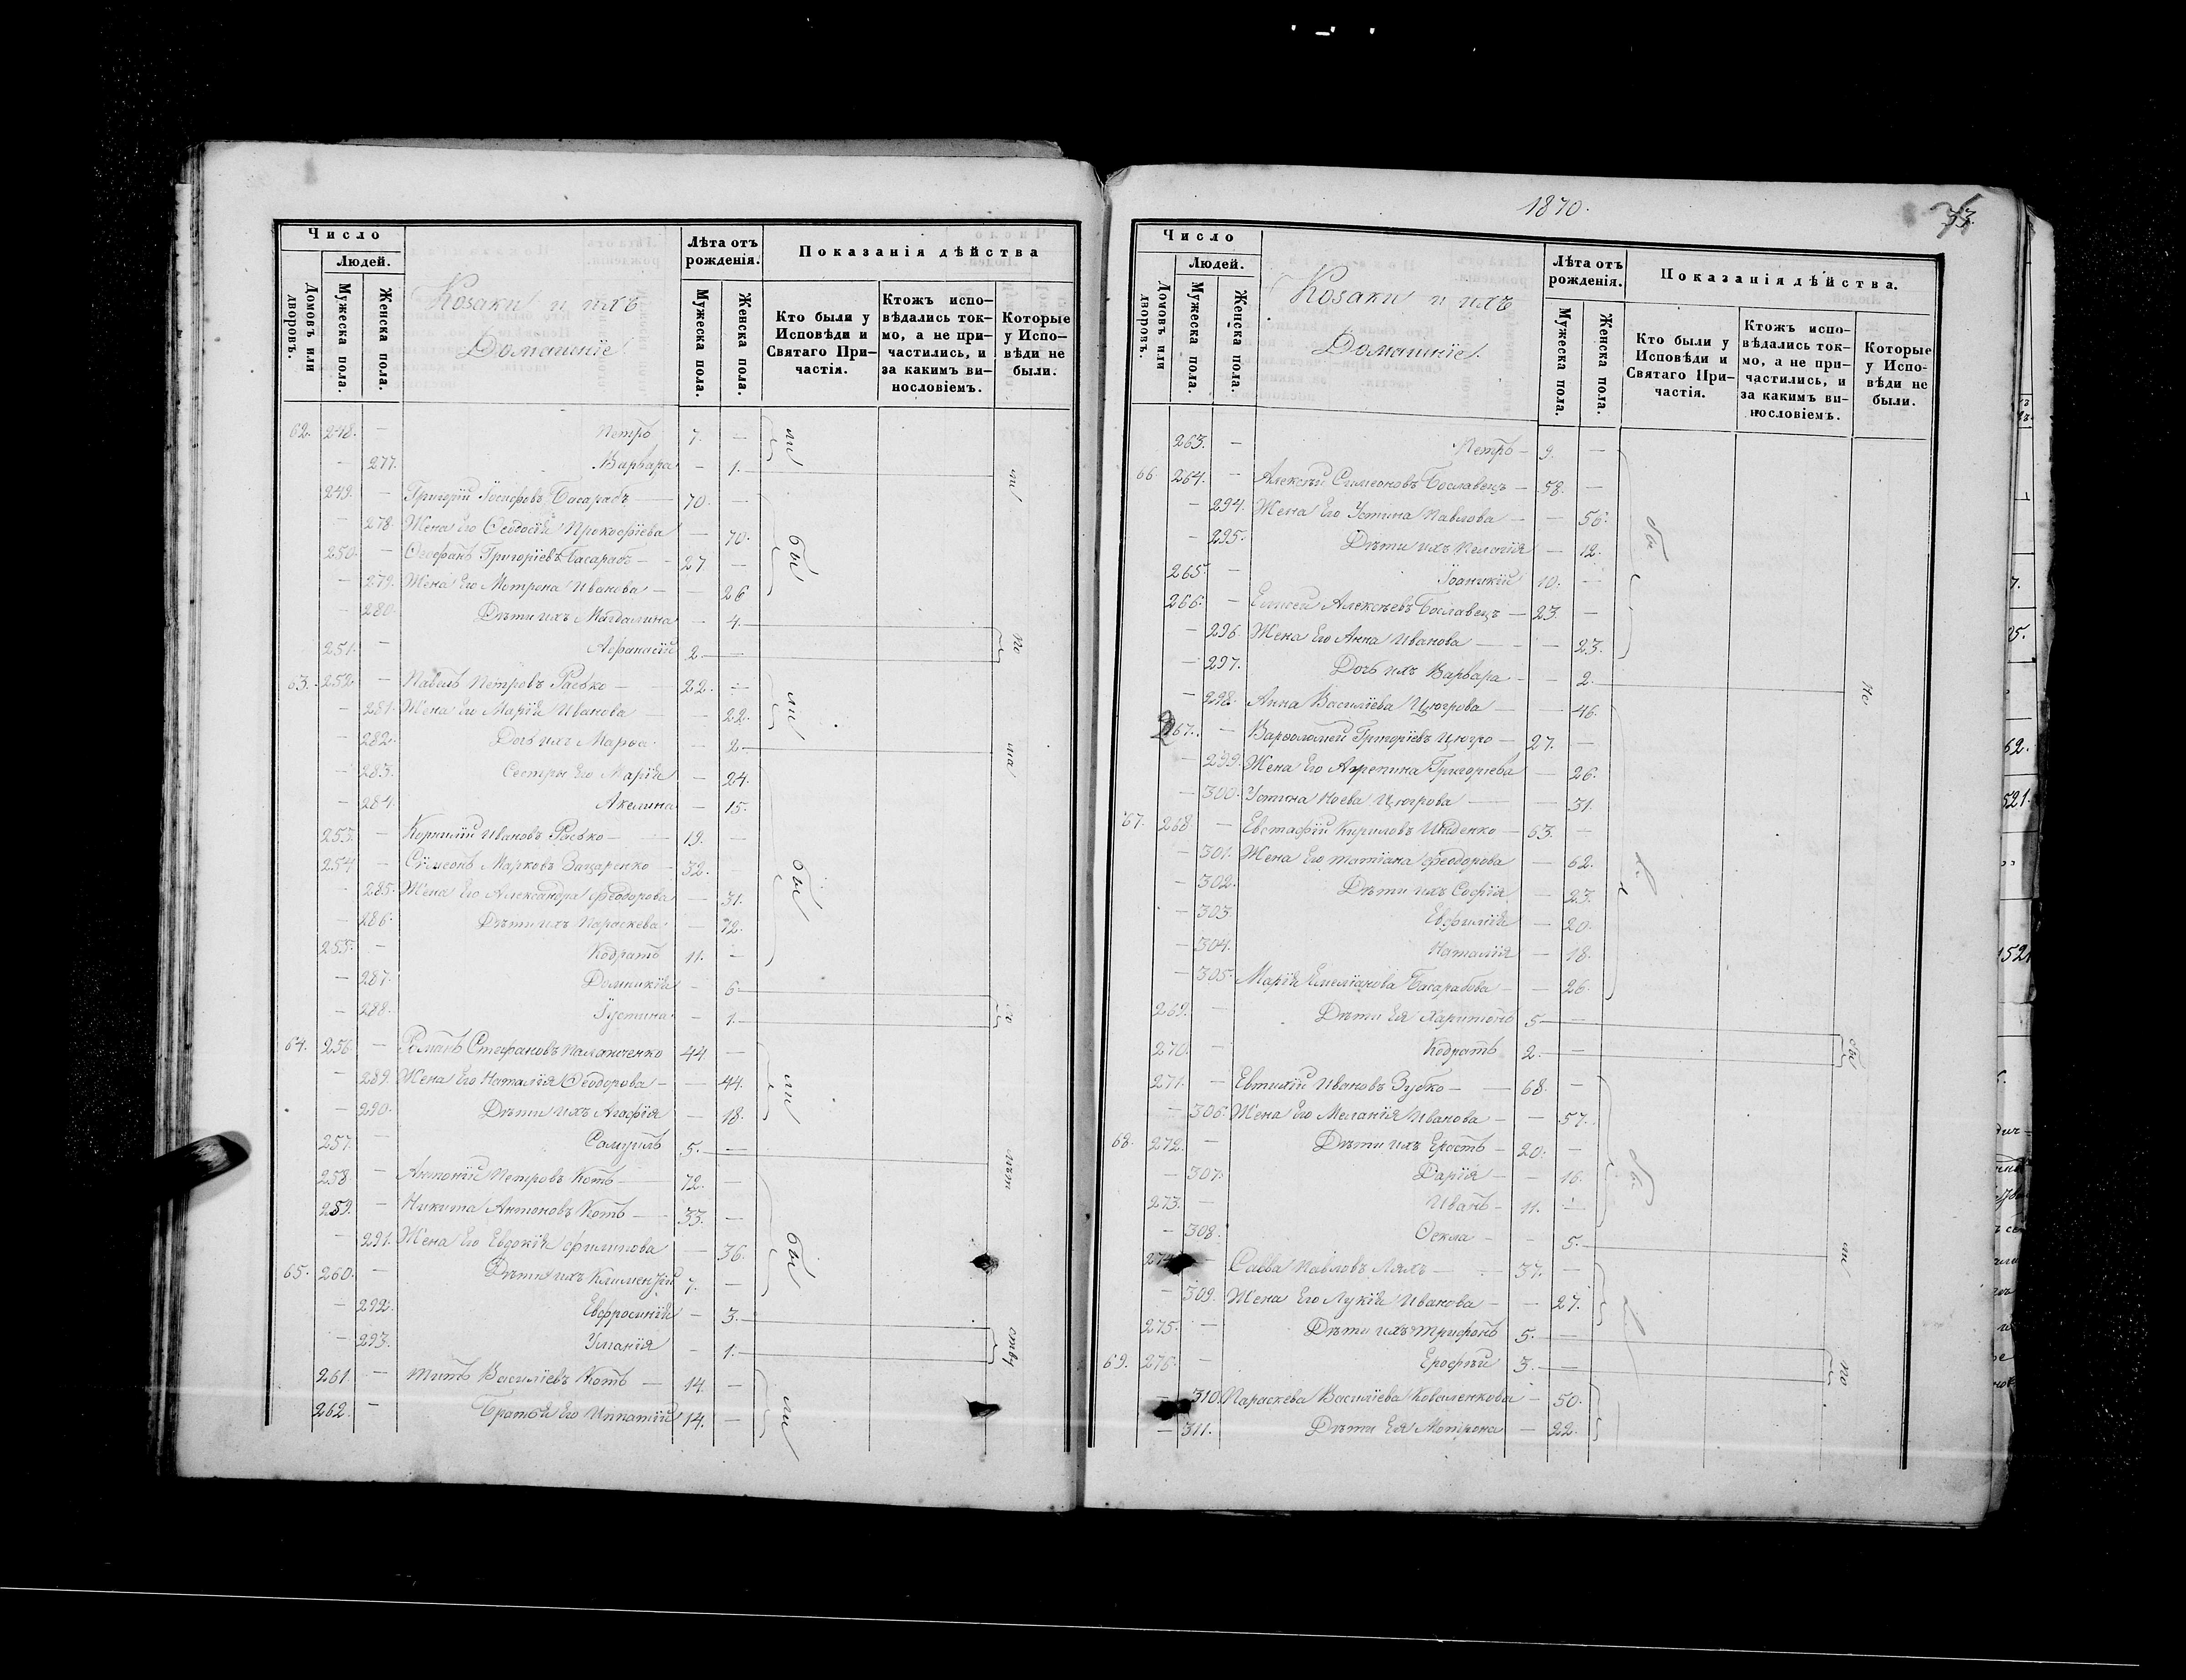 Число
Людей.
Домовъ или дворовъ.
Мужеска пола.
Женска пола.
Козаки и ихъ
Домашніе
Лѣта отъ рожденія.
Мужеска пола.
Женска пола.
Показанія дѣйства
Кто были у Исповѣди и Святаго Причастія.
Ктожъ исповѣдались токмо, а не причастились, и за какимъ винословіемъ.
Которые у Исповѣди не были.
62. 248. — Петро 7. — ли
— 277. Варвара — 1.
249. — Григорій Іосифовъ Басарабъ — 70. —
— 278. Жена Его Ѳеодосія Прокофіева — 70.
250. — Стефанъ Григоріевъ Басарабъ — 27. — бы
— 279. Жена Его Мотрона Иванова — 26
— 280. Дѣти ихъ Магдалина — 4.
251. — Афанасій 2. — по
63. 252. — Павелъ Петровъ Расько — 22. —
— 281. Жена Его Марія Иванова — 22. ли
— 282. Дочь ихъ Марѳа — 2.
— 283. Сестры Его Марія — 24.
— 284. Акелина — 15.
253. — Корнилій Ивановъ Расько — 19. —
254 — Сѵмеонъ Марковъ Зацаренко — 32. бы
— 285. Жена Его Александра Феодорова — 31.
— 286. Дѣти ихъ Параскева — 12.
255. — Кодратъ 11. —
— 287. Домникія — 6.
— 288. Іустина — 1.
64. 256. — Романъ Стефановъ Паламченко 44 —
— 289. Жена Его Наталія Ѳеодорова — 44. ли
— 290. Дѣти ихъ Агафія — 18.
257. — Самуилъ 5. —
258 — Антоній Петровъ Котъ — 72. —
259. — Никита Антоновъ Котъ — 33. —
— 291. Жена Его Евдокія Филипова — 36. бы
65. 260. — Дѣти ихъ Климентій 7. —
— 292. Евфросинія — 3.
— 293. Уліанія — 1.
261. — Титъ Василіевъ Котъ — 14. —
262. — Братья Его Ипатій 14. — ли
1870.
Число
Людей.
Домовъ или дворовъ.
Мужеска пола.
Женска пола.
Козаки и ихъ
Домашніе.
Лѣта отъ рожденія.
Мужеска пола.
Женска пола.
Показанія дѣйства.
Кто были у Исповѣди и Святаго Причастія.
Ктожъ исповѣдались токмо, а не причастились, и за какимъ винословіемъ.
Которые у Исповѣди не были.
263. — Петръ — 9. —
66 264. — Алексѣй Симеоновъ Бославецъ — 58. —
— 294. Жена Его Устина Павлова — — 56.
— 295. Дѣти ихъ Пелагія — 12.
265. — Іоаникій 10. —
266. — Елисей Алексѣевъ Бославецъ — 23. —
— 296. Жена Его Анна Иванова — — 23.
— 297. Дочь ихъ Варвара — — 2.
— 298. Анна Василіева Цюгрова — — 46.
267. — Варѳоломей Григоріевъ Цюгро — 27. —
— 299. Жена Его Агрепина Григорьева — 26.
— 300. Устина Ноева Цюгрова — — 31.
67. 268. — Евстафій Кириловъ — 63. —
— 301. Жена Его Татіана Феодорова — 62.
— 302. Дѣти ихъ Софія — 23.
— 303. Евфимія — 20.
— 304. Наталія — 18.
— 305. Марія Емеліанова Басарабова — — 26.
269. — Дѣти Ея Харитонъ 5. —
270. — Кодратъ 2. —
271. — Евтихій Ивановъ Зубко — — 68. —
— 306. Жена Его Меланія Иванова — — 57.
68. 272. — Дѣти ихъ Ерастъ — 20. —
— 307. Дарія — — 16.
273. — Иванъ — 11. —
— 308. Ѳекла — — 5.
274. — Савва Павловъ Ляхъ — 37. —
— 309. Жена Его Лукія Иванова — — 27.
275. — Дѣти ихъ Трифонъ 5. —
69. 276. — Ерофѣй 3. — по
— 310. Параскева Василіева Коваленкова — 50.
— 311. Дѣти Ея Мотрона — 22.